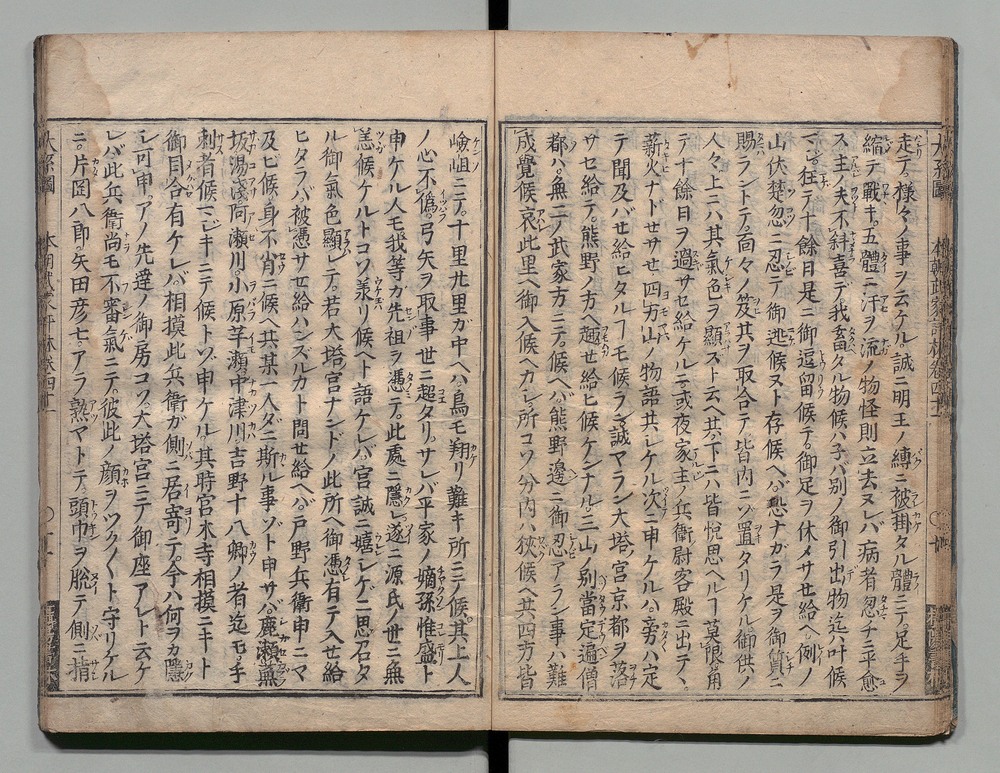 走テ。様々ノ事ヲ云ケル。誠ニ明王ノ縛ニ被掛タル體ニテ。足手ヲ
縮テ戰キ。五體ニ汗ヲ流ノ物怪則立去ヌレバ病者忽チニ平愈
ス主ノ夫不斜喜デ我畜タル物候ハ子バ別ノ御引出物迄ハ叶候
マジ。狂テ十餘日是ニ御逗留候テ。御足ヲ休メサセ給ヘ。例ノ
山伏楚忽ニ忍テ御逃候ヌト存候ヘバ。恐ナガラ是ヲ御質ニ
賜ラントテ。面々ノ笈共ヲ取合テ皆内ニゾ置タリケル御供ノ
人々上ニハ其氣色ヲ顯ズト云ヘ共。下ニハ皆悦思ヘルヿ莫限。角
テ十餘日ヲ過サセ給ケルニ或夜家主ノ兵衛尉客殿ニ出テ。
薪火ナドセサセ四方山ノ物語共シケル次ニ申ケルハ。旁ハ定
テ聞及バセ給ヒタルヿモ候ラン誠マラン大塔ノ宮京都ヲ落
サセ給テ。熊野ノ方ヘ趣セ給ヒ候ケンナル。三山ノ別當定遍僧
都ハ。無二ノ武家方ニテ。候ヘバ。熊野邊ニ御忍アラン事ハ難
成覺候。哀此里ヘ御入候ヘカシ。所コソ分内ハ狹候ヘ共四方皆
嶮岨ニテ。十里廿里ガ中ヘハ。鳥モ翔リ難キ所ニテ候。其上人
ノ心不僞。弓矢ヲ取事世ニ超タリ。サレバ平家ノ嫡孫惟盛ト
申ケル人モ我等ガ先祖ヲ憑テ。此處ニ隱レ遂ニ源氏ノ世ニ無
恙候ケルトコソ羡リ候ヘト語ケレバ。宮誠ニ嬉シゲニ思召タ
ル御氣色顯レテ。若大塔宮ナンドノ此所ヘ御憑有テ入セ給
ヒタラバ。被憑サセ給ハンズルカト問セ給ヘバ。戸野兵衛申ニマ
及ビ候。身不肖ニ候ヘ共某一人ダニ斯ル事ゾト申サバ。鹿瀬蕪
坂湯淺阿瀬川。小原芋瀬中津川。吉野十八卿ノ者迄モ。手
刺者候マジキニテ候トゾ申ケル。其時宮木寺相摸ニキト
御目合有ケレバ。相摸此兵衛ガ側ニ居寄テ今ハ何ヲカ隱
シ可申。アノ先達ノ御房コソ大塔宮ニテ御座アレト云ケ
レバ此兵衛尚モ不審氣ニテ。彼此ノ顔ヲツク〳〵ト守リケル
ニ。片岡八郎。矢田彦七。アラ熱マトテ。頭巾ヲ脱テ側ニ指